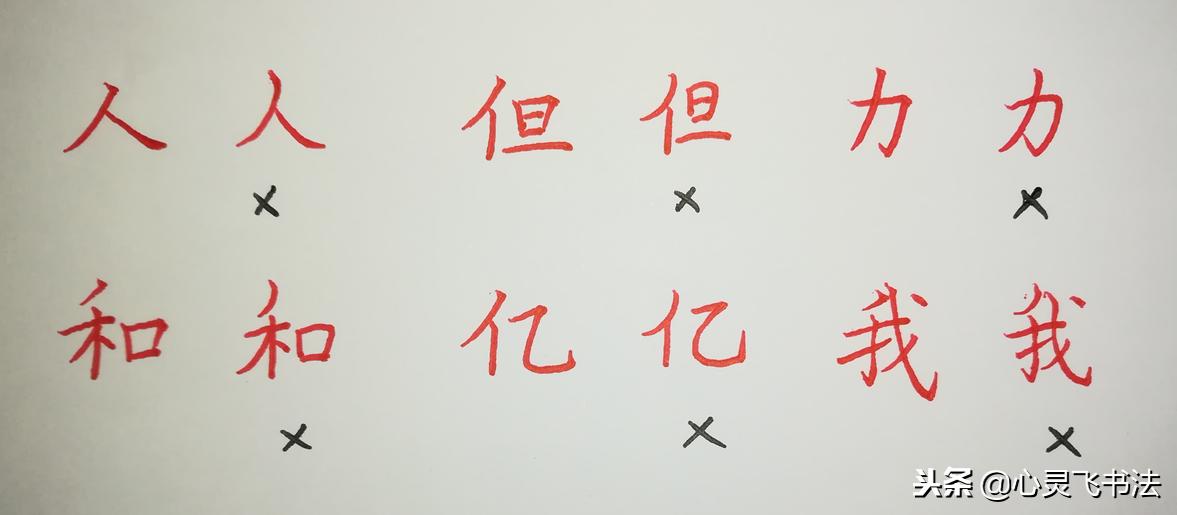 人 人 但 但 力 力
× × ×
和 和 亿 亿 我 我
× × ×
头条 @心灵飞书法